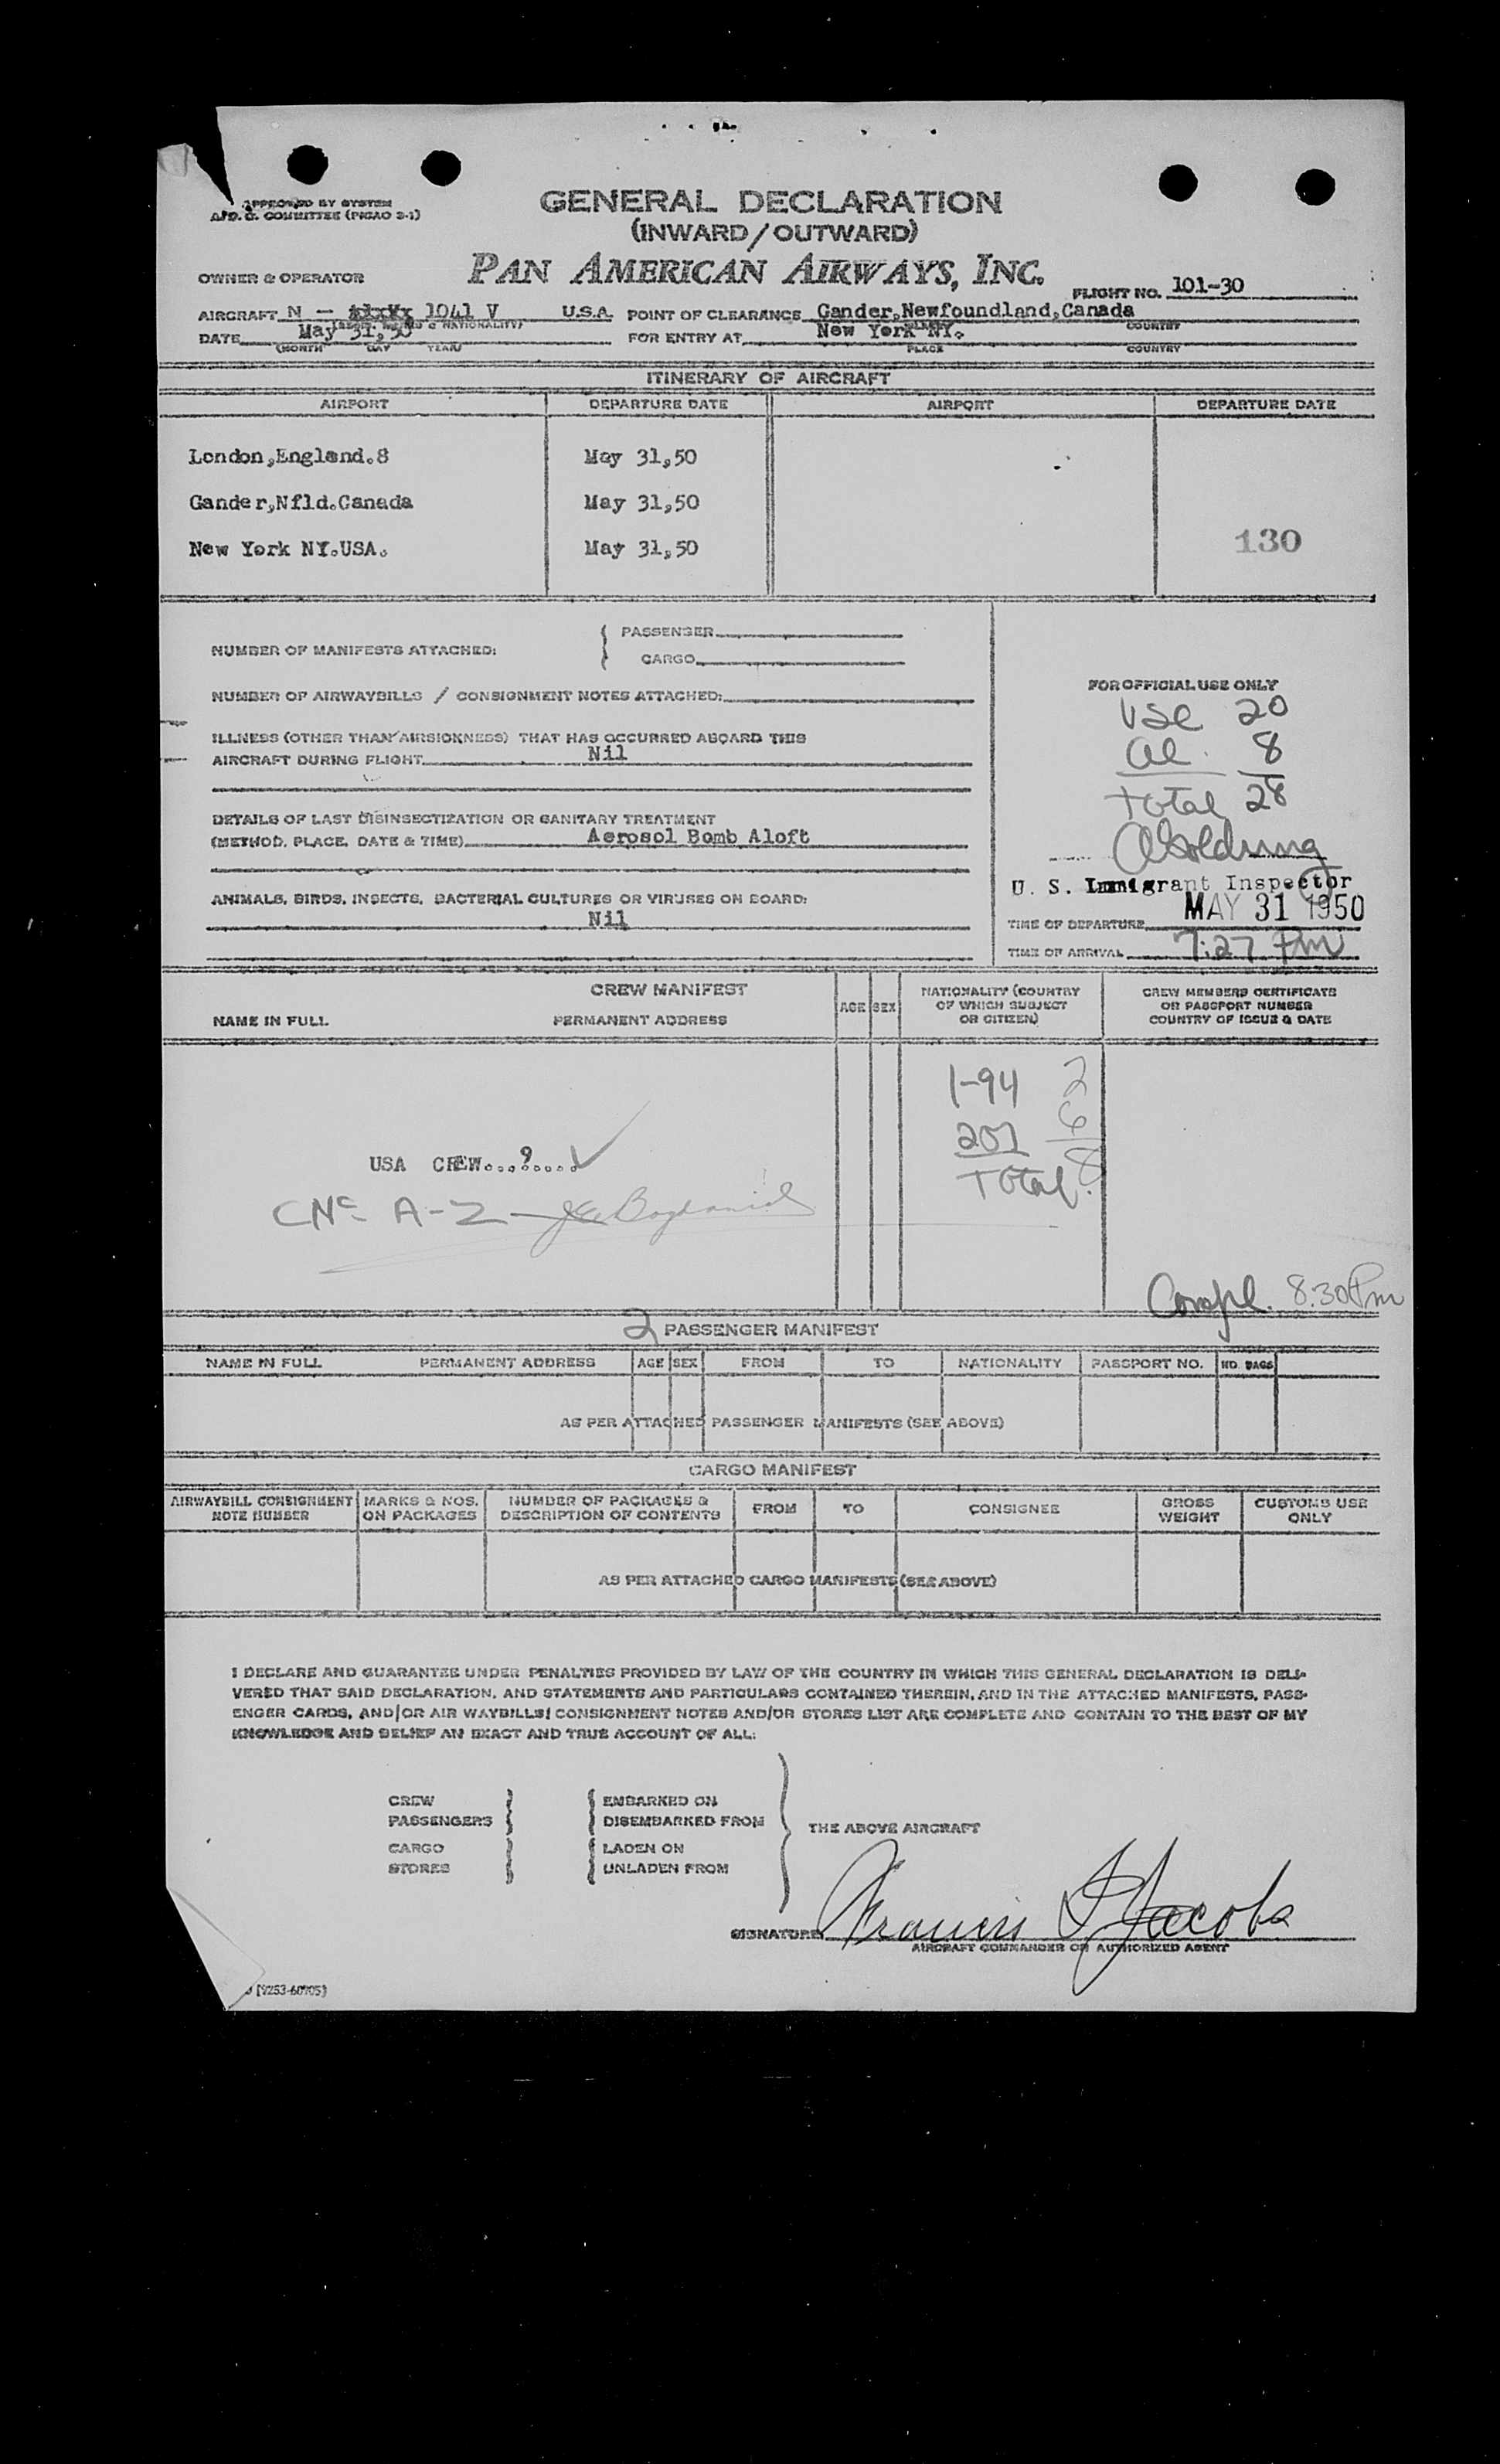 APPROVED BY SYSTEM
A/D. C. COMMITTEE (PICAO 2-1)
GENERAL DECLARATION
(INWARD/OUTWARD)
OWNER & OPERATOR PAN AMERICAN AIRWAYS, INC. FLIGHT NO. 101-30
AIRCRAFT N - 1041 V U.S.A. POINT OF CLEARANCE Gander,Newfoundland,Canada
DATE May 31,50 FOR ENTRY AT New York NY.
(MONTH DAY YEAR) PLACE COUNTRY
ITINERARY OF AIRCRAFT
AIRPORT DEPARTURE DATE AIRPORT DEPARTURE DATE
London,England.8 May 31,50
Gander,Nfld.Canada May 31,50
New York NY.USA. May 31,50 130
NUMBER OF MANIFESTS ATTACHED: PASSENGER
CARGO
NUMBER OF AIRWAYBILLS / CONSIGNMENT NOTES ATTACHED:
ILLNESS (OTHER THAN AIRSICKNESS) THAT HAS OCCURRED ABOARD THIS
AIRCRAFT DURING FLIGHT Nil
DETAILS OF LAST DISINSECTIZATION OR SANITARY TREATMENT
(METHOD, PLACE, DATE & TIME) Aerosol Bomb Aloft
ANIMALS, BIRDS, INSECTS, BACTERIAL CULTURES OR VIRUSES ON BOARD:
Nil
FOR OFFICIAL USE ONLY
USC 20
al. 8
Total 28
U. S. Immigrant Inspector
MAY 31 1950
TIME OF DEPARTURE
TIME OF ARRIVAL 7:27 PM
CREW MANIFEST
NAME IN FULL PERMANENT ADDRESS AGE SEX NATIONALITY (COUNTRY OF WHICH SUBJECT OR CITIZEN) CREW MEMBERS CERTIFICATE OR PASSPORT NUMBER COUNTRY OF ISSUE & DATE
1-94 2
257 6
Total. 8
USA CREW...9....
A-Z
Compl. 8.30 Pm
2 PASSENGER MANIFEST
NAME IN FULL PERMANENT ADDRESS AGE SEX FROM TO NATIONALITY PASSPORT NO. NO. BAGS
AS PER ATTACHED PASSENGER MANIFESTS (SEE ABOVE)
CARGO MANIFEST
AIRWAYBILL CONSIGNMENT NOTE NUMBER MARKS & NOS. ON PACKAGES NUMBER OF PACKAGES & DESCRIPTION OF CONTENTS FROM TO CONSIGNEE GROSS WEIGHT CUSTOMS USE ONLY
AS PER ATTACHED CARGO MANIFESTS (SEE ABOVE)
I DECLARE AND GUARANTEE UNDER PENALTIES PROVIDED BY LAW OF THE COUNTRY IN WHICH THIS GENERAL DECLARATION IS DELI-
VERED THAT SAID DECLARATION, AND STATEMENTS AND PARTICULARS CONTAINED THEREIN, AND IN THE ATTACHED MANIFESTS, PASS-
ENGER CARDS, AND/OR AIR WAYBILLS/ CONSIGNMENT NOTES AND/OR STORES LIST ARE COMPLETE AND CONTAIN TO THE BEST OF MY
KNOWLEDGE AND BELIEF AN EXACT AND TRUE ACCOUNT OF ALL:
CREW EMBARKED ON
PASSENGERS DISEMBARKED FROM
THE ABOVE AIRCRAFT
CARGO LADEN ON
STORES UNLADEN FROM
SIGNATURE Francis J Jacobs
AIRCRAFT COMMANDER OR AUTHORIZED AGENT